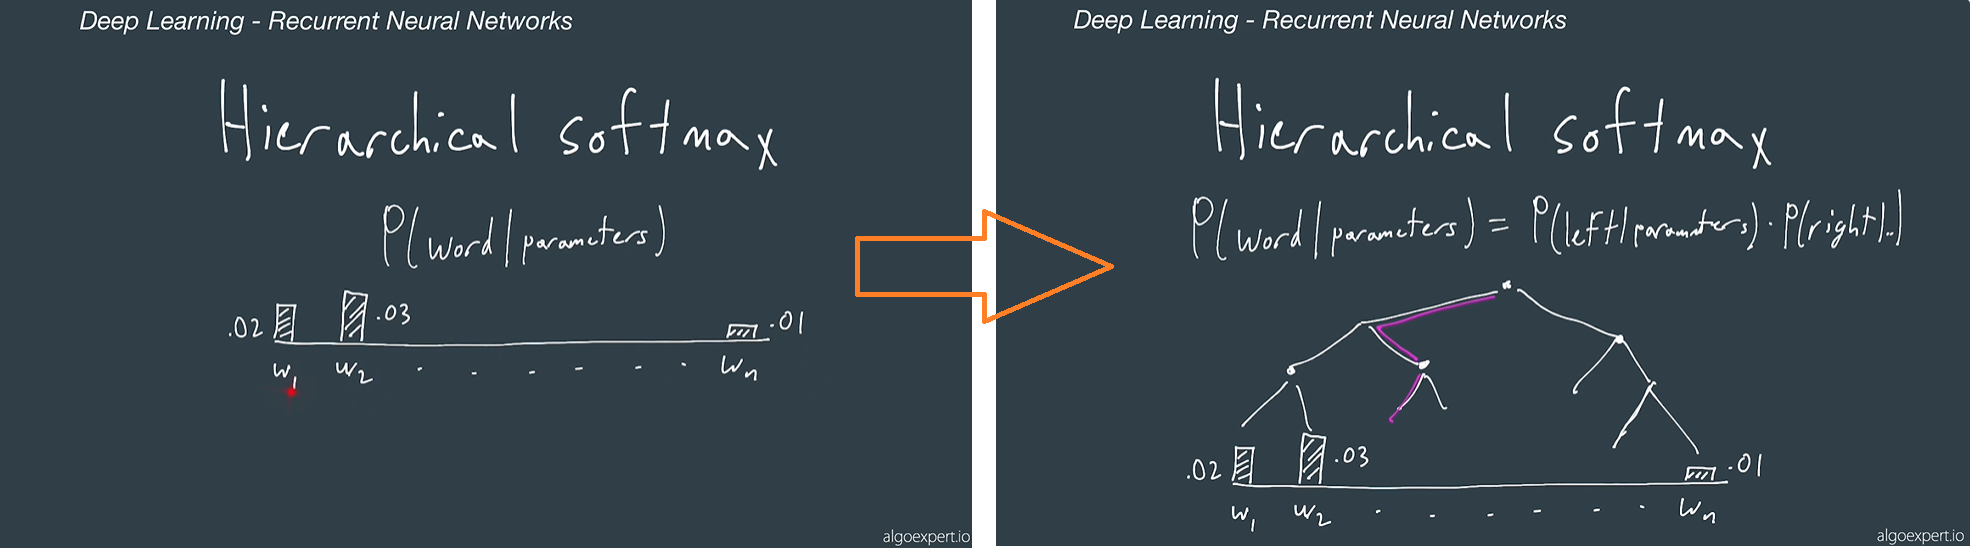 Deep Learning - Recurrent Neural Networks
Hierarchical softmax
P(word|parameters)
.02 .03 .01
w1 w2 . . . . . . wn
algoexpert.io
Deep Learning - Recurrent Neural Networks
Hierarchical softmax
P(word|parameters) = P(left|parameters) · P(right|..)
.02 .03 .01
w1 w2 . . . . . . wn
algoexpert.io